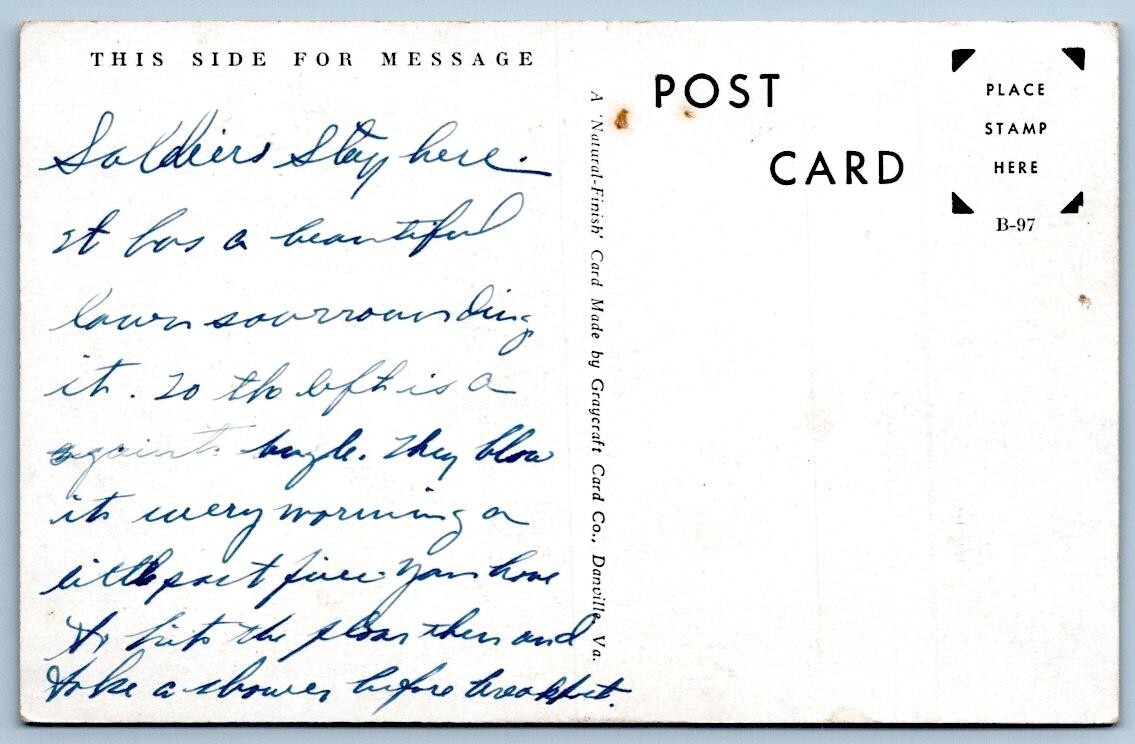 THIS SIDE FOR MESSAGE
Soldiers Stay here.
It has a beautiful
lawn sourrounding
it. To the left is a
bugle. They blow
it every morning a
little past five. You have
to hit the floor then and
take a shower before breakfast.
A 'Natural-Finish' Card Made by Graycraft Card Co., Danville, Va.
POST
CARD
PLACE
STAMP
HERE
B-97